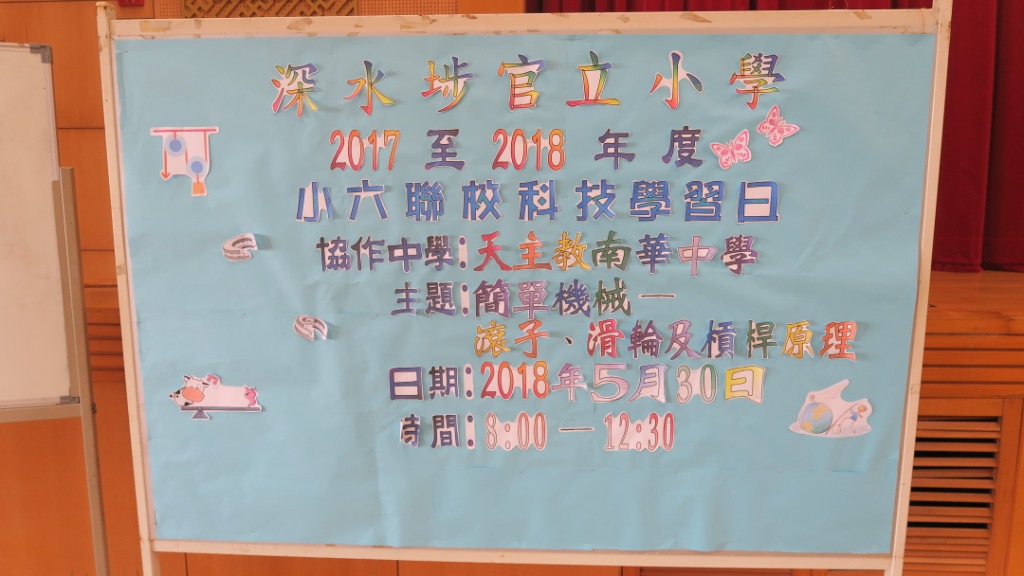 深水埗官立小學
2017 至 2018 年度
小六聯校科技學習日
協作中學：天主教南華中學
主題：簡單機械—
滾子、滑輪及槓桿原理
日期：2018年5月30日
時間：8:00 — 12:30